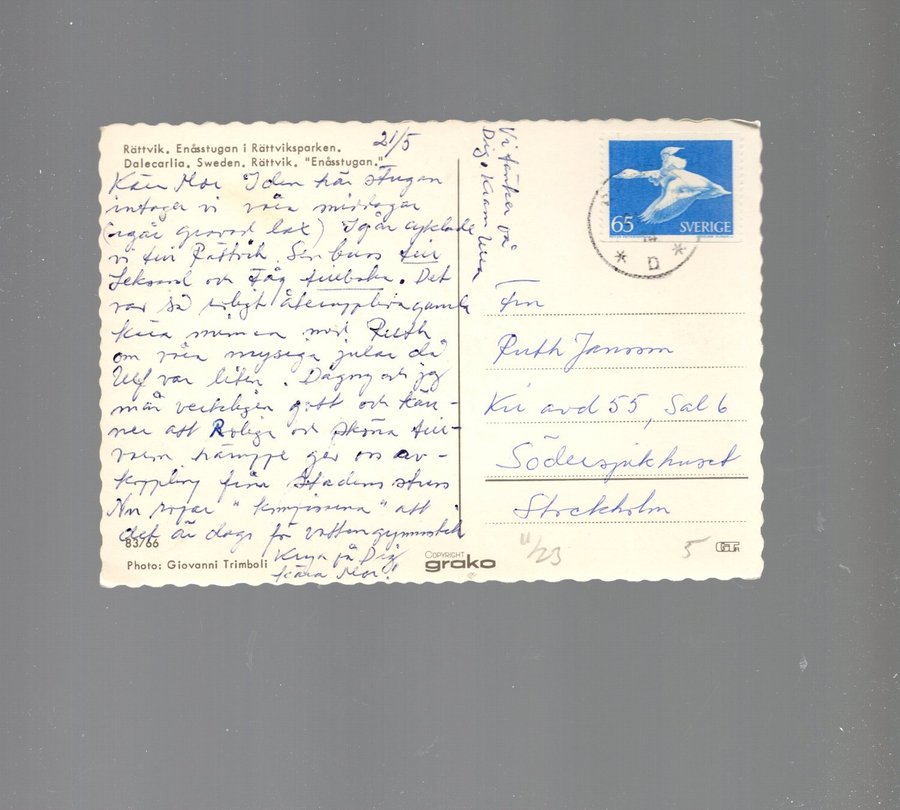 Rättvik. Enåsstugan i Rättviksparken.
Dalecarlia. Sweden. Rättvik. "Enåsstugan."
21/5
Kära Mor I den här stugan
intager vi våra middagar
(igår gravad lax) Igår cyklade
vi till Rättvik. Sen buss till
Leksand och tåg tillbaka. Det
var så roligt återuppliva gamla
kära minnen med Ruth
om våra mysiga jular då
Ulf var liten. Dagny och jag
mår verkligen gott och kän-
ner att Roliga och sköna
ger oss av-
koppling från stadens stress
Nu ropar " " att
det är dags för vattengymnastik
Krya på Dig
kära Mor!
Vi tänker på
Dig. Kram
83/66
Photo: Giovanni Trimboli
COPYRIGHT
grako
65 SVERIGE
D
Fru
Ruth Jansson
Kir avd 55, Sal 6
Södersjukhuset
Stockholm
5